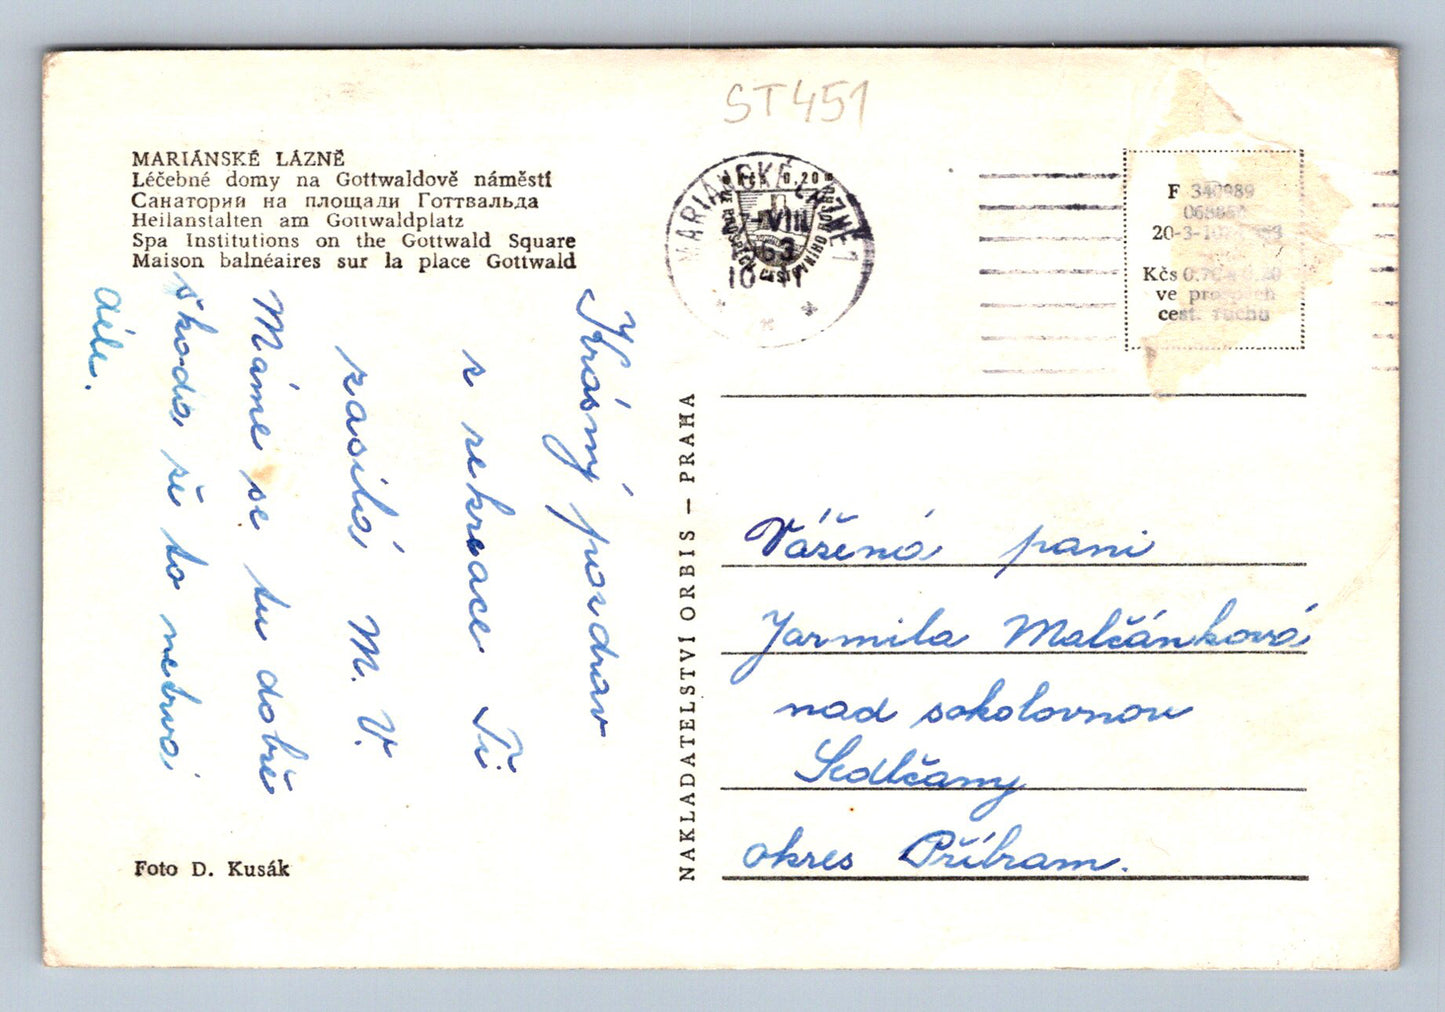 ST451
MARIÁNSKÉ LÁZNĚ
Léčebné domy na Gottwaldově náměstí
Санатории на площади Готтвальда
Heilanstalten am Gottwaldplatz
Spa Institutions on the Gottwald Square
Maison balnéaires sur la place Gottwald
Krásný pozdrav
z rekreace Ti
zasílá M. V.
Máme se tu dobře
škoda, že to netrvá
déle.
Foto D. Kusák
NAKLADATELSTVÍ ORBIS – PRAHA
MARIÁNSKÉ LÁZNĚ 1
VIII
63
10-11
F 340989
20-3-
Kčs 0.70 0.20
ve prospěch
cest. ruchu
Vážená paní
Jarmila Malčánková
nad sokolovnou
Sedlčany
okres Příbram.